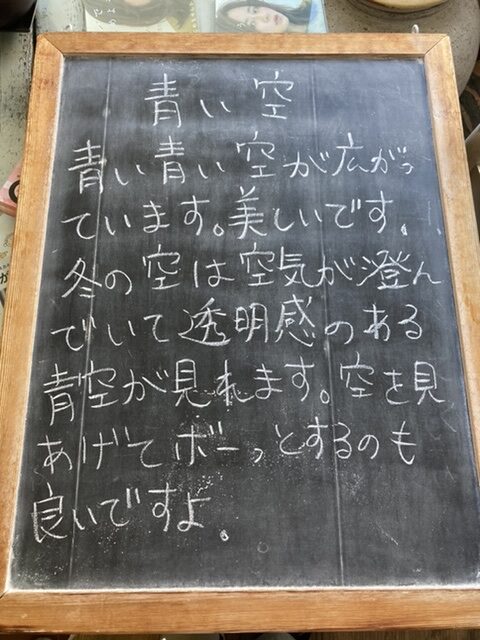 青い空
青い青い空が広がっ
ています。美しいです。
冬の空は空気が澄ん
でいて透明感のある
青空が見れます。空を見
あげてボーっとするのも
良いですよ。